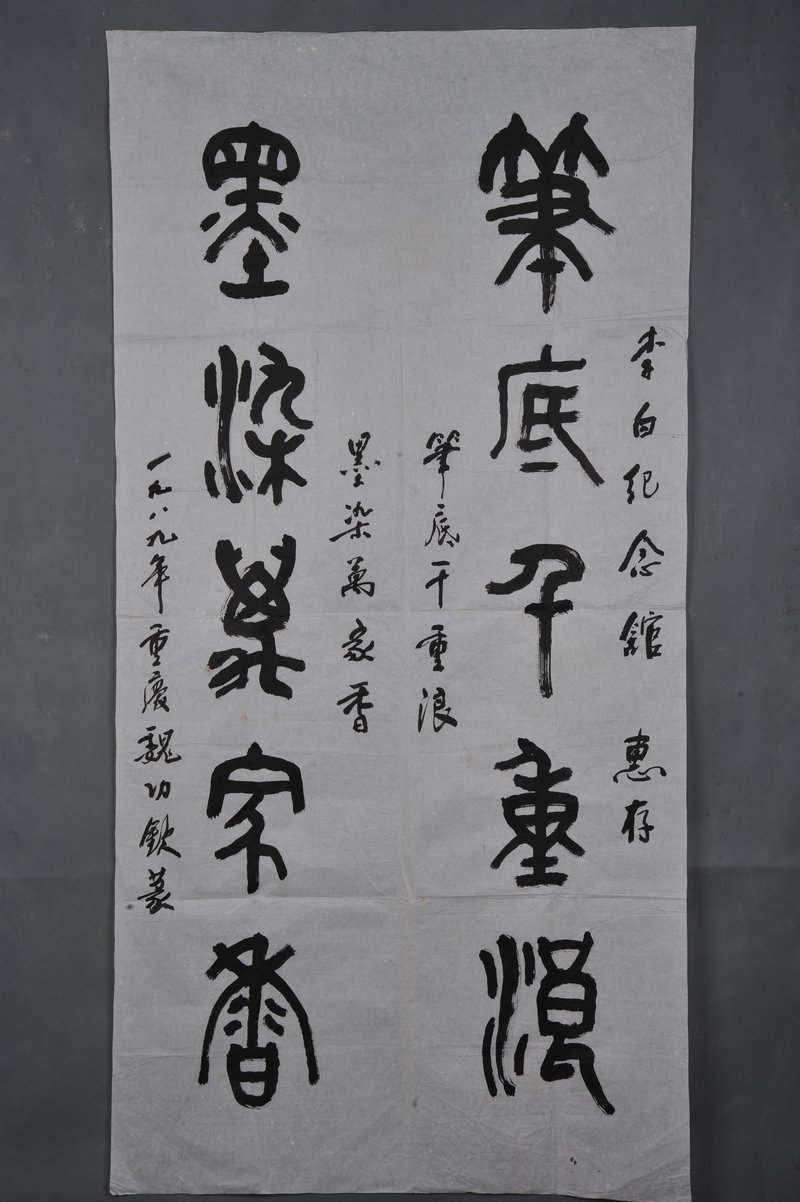 李白纪念舘 惠存
筆底千重浪
筆底千重浪
墨染萬家香
墨染萬家香
一九八九年重慶魏功欽篆